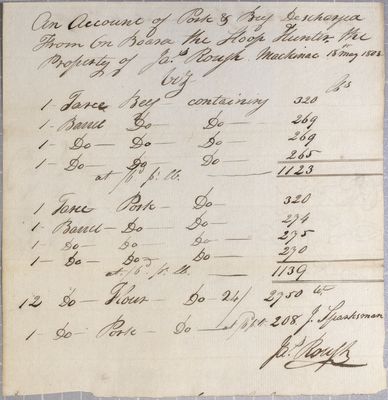 An Account of Pork & Beef Discharged
From on Board the Sloop Hunter the
Property of Jas. Rough Machinac 18th may 1803
Viz
lbs
1 - Tarce Beef containing 320
1 - Barrel Do - Do - 269
1 - Do - Do - Do - 269
1 - Do - Do Do - 265
at pr. lb. 1123
1 Tarce Pork - Do - 320
1 - Barrel - Do - Do - 274
1 - Do - Do - Do - 275
1 - Do - Do Do - 270
at pr. lb. 1139
12 Do - Flour - Do - 24/ 2750
1 - Do - Pork - Do - at 208 J. Sparksman
Jas. Rough